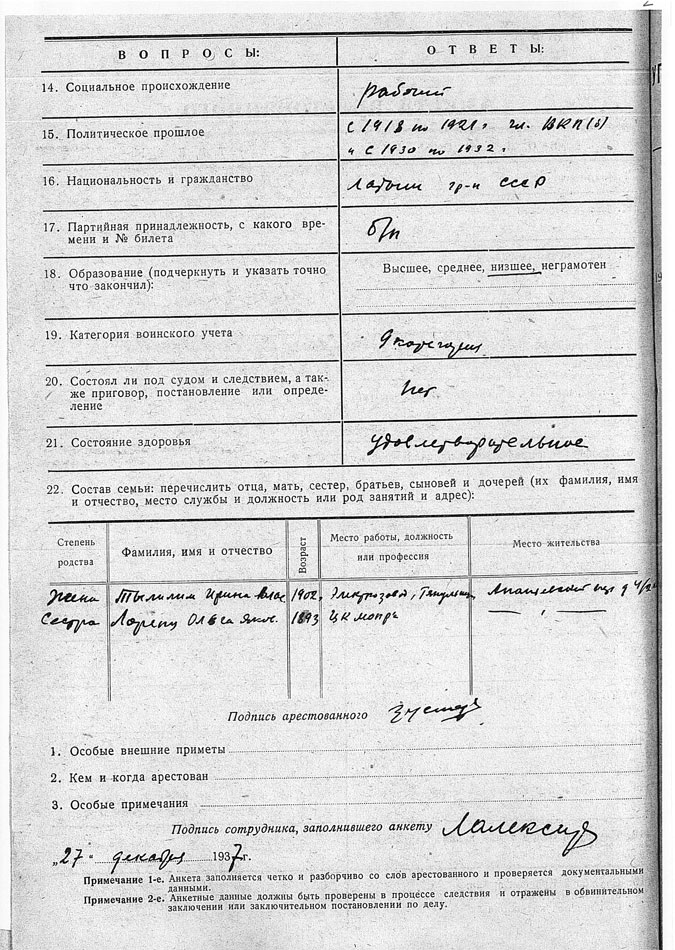 2
ВОПРОСЫ: ОТВЕТЫ:
14. Социальное происхождение рабочий
15. Политическое прошлое с 1918 по 1921 г чл. ВКП(б)
и с 1930 по 1932 г
16. Национальность и гражданство Латыш гр-н СССР
17. Партийная принадлежность, с какого вре-
мени и № билета б/п
18. Образование (подчеркнуть и указать точно Высшее, среднее, низшее, неграмотен
что закончил):
19. Категория воинского учета категория
20. Состоял ли под судом и следствием, а так-
же приговор, постановление или опреде- Нет
ление
21. Состояние здоровья удовлетворительное
22. Состав семьи: перечислить отца, мать, сестер, братьев, сыновей и дочерей (их фамилия, имя
и отчество, место службы и должность или род занятий и адрес):
Степень родства Фамилия, имя и отчество Возраст Место работы, должность или профессия Место жительства
Жена Ирина 1902
Сестра Ольга 1893 ЦК Мопр'а
Подпись арестованного
1. Особые внешние приметы
2. Кем и когда арестован
3. Особые примечания
Подпись сотрудника, заполнившего анкету
„27“ декабря 1937г.
Примечание 1-е. Анкета заполняется четко и разборчиво со слов арестованного и проверяется документальными
данными.
Примечание 2-е. Анкетные данные должны быть проверены в процессе следствия и отражены в обвинительном
заключении или заключительном постановлении по делу.